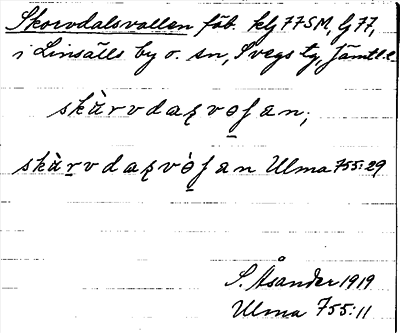 Skorvdalsvallen fäb. klj 77SM, lj 77,
i Linsälls by o. sn, Svegs tg, Jämtl. l.
skàrvdaʐvo̲ʃan;
skàr̲vdaʐvò̲ʃan Ulma 755:29
S. Åsander 1919
Ulma 755:11